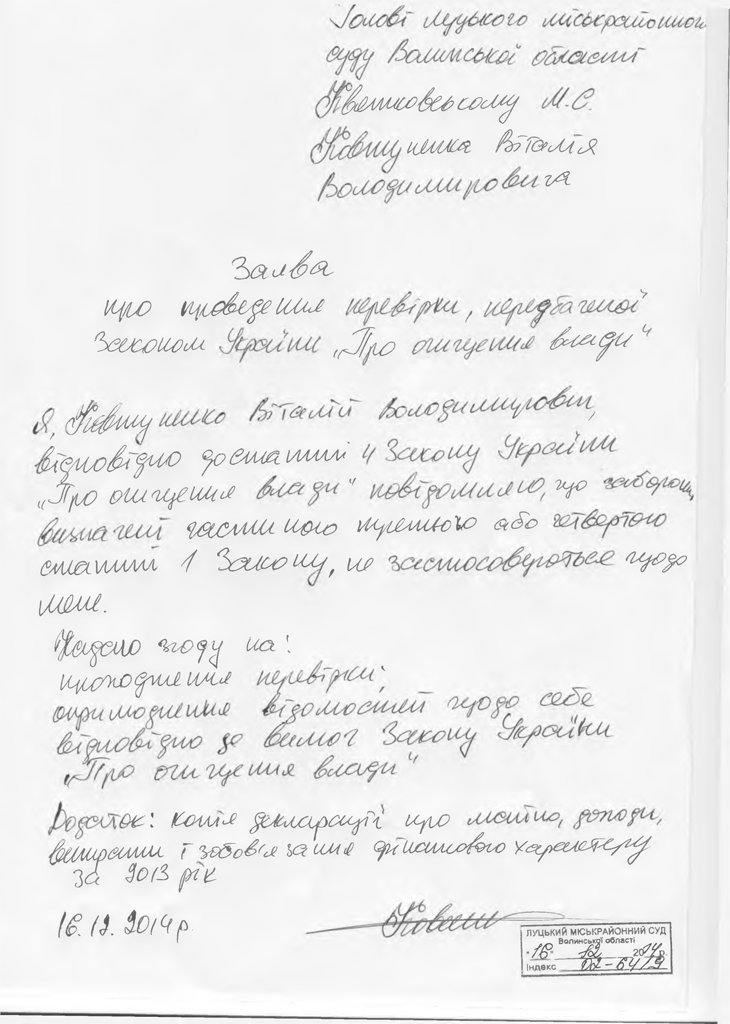 Голові Луцького міськрайонного
суду Волинської області
Квятковському М.С.
Ковтуненка Віталія
Володимировича
Заява
про проведення перевірки, передбаченої
Законом України „Про очищення влади"
Я, Ковтуненко Віталій Володимирович,
відповідно до статті 4 Закону України
„Про очищення влади" повідомляю, що заборони,
визначені частиною третьою або четвертою
статті 1 Закону, не застосовуються щодо
мене.
Надаю згоду на:
проходження перевірки;
оприлюднення відомостей щодо себе
відповідно до вимог Закону України
„Про очищення влади"
Додаток: копія декларації про майно, доходи,
витрати і зобов'язання фінансового характеру
за 2013 рік
16.12.2014 р.
ЛУЦЬКИЙ МІСЬКРАЙОННИЙ СУД
Волинської області
"16" 12 2014 р.
Індекс 02-64/9